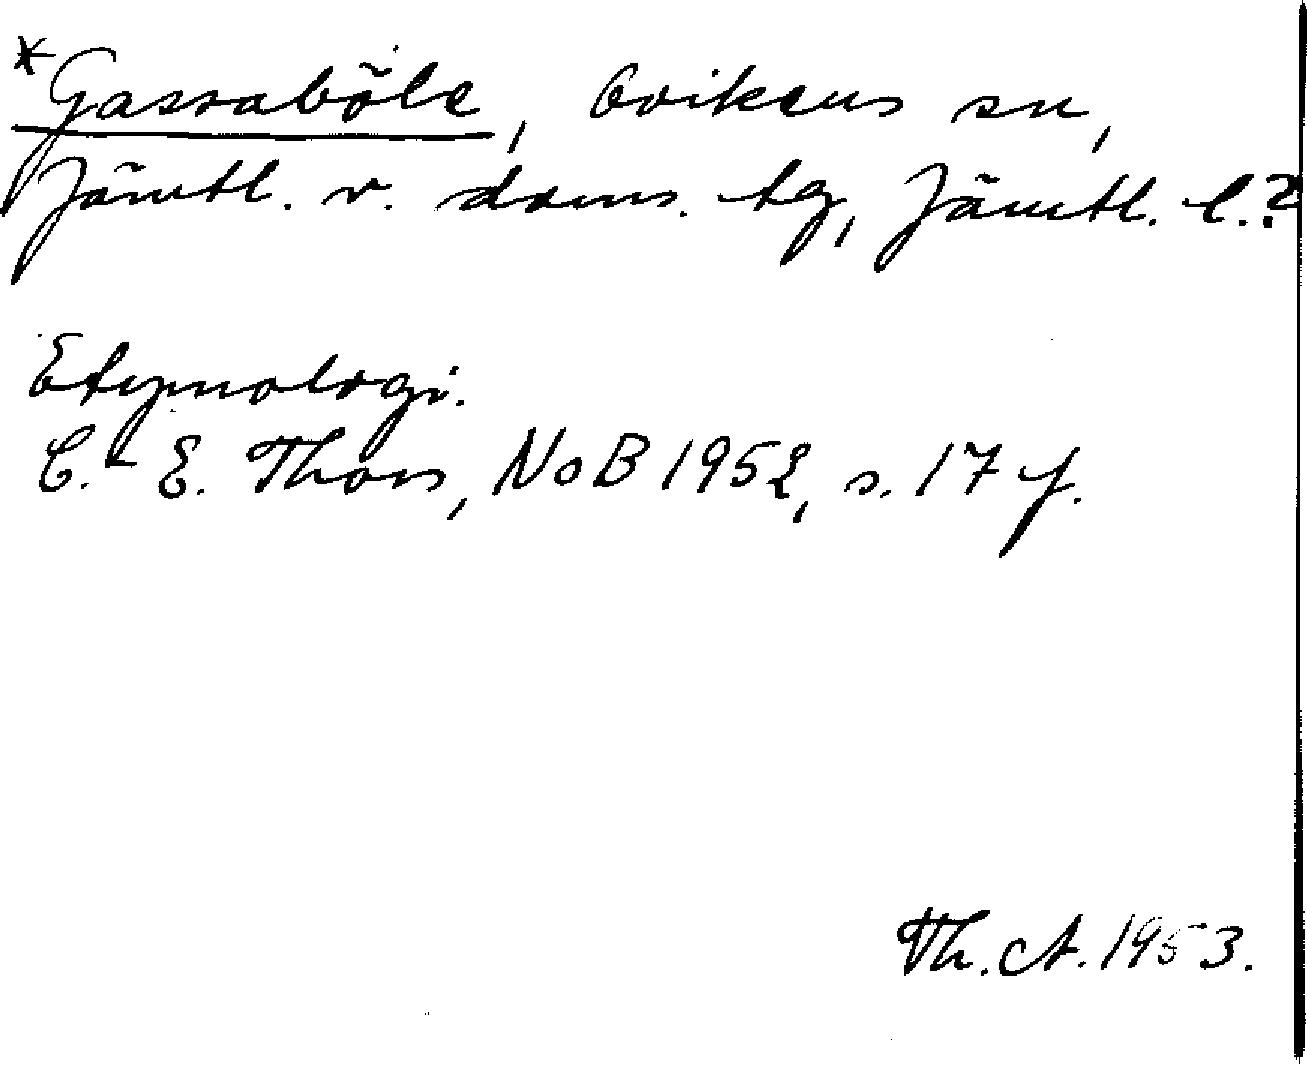 *Gassaböle, Ovikens sn,
Jämtl. v. doms. tg, Jämtl. l.?
Etymologi.
C.-E. Thors, NoB 1952, s. 17 f.
Th. A. 1953.